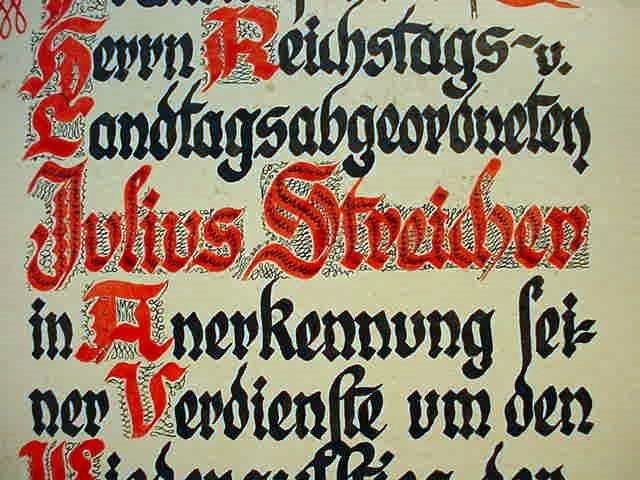 Herrn Reichstags- v.
Landtagsabgeordneten
Julius Streicher
in Anerkennung sei-
ner Verdienste um den
Wiederaufstieg der